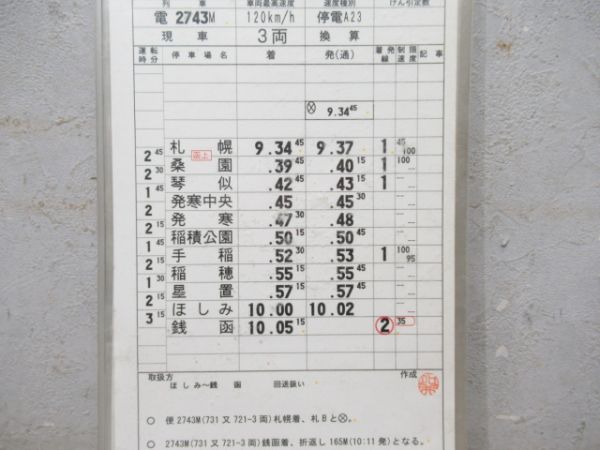 列車 車両最高速度 速度種別 けん引定数
電 2743M 120km/h 停電A23
現車 3両 換算
運転時分 停車場名 着 発(通) 着発線 制限速度 記事
⊗ 9.34 45
札幌 9.34 45 9.37 1 45 100
2 45 函上
桑園 .39 45 .40 15 1 100
2 30
琴似 .42 45 .43 15 1
1 45
発寒中央 .45 .45 30
2
発寒 .47 30 .48
2 15
稲積公園 .50 15 .50 45
1 45
手稲 .52 30 .53 1 100 95
2 15
稲穂 .55 15 .55 45
1 30
星置 .57 15 .57 45
2 15
ほしみ 10.00 10.02
3 15
銭函 10.05 15 2 35
取扱方 作成
ほしみ~銭函 回送扱い
○ 便2743M(731又721-3両)札幌着、札Bと⊗。
○ 2743M(731又721-3両)銭函着、折返し165M(10:11発)となる。